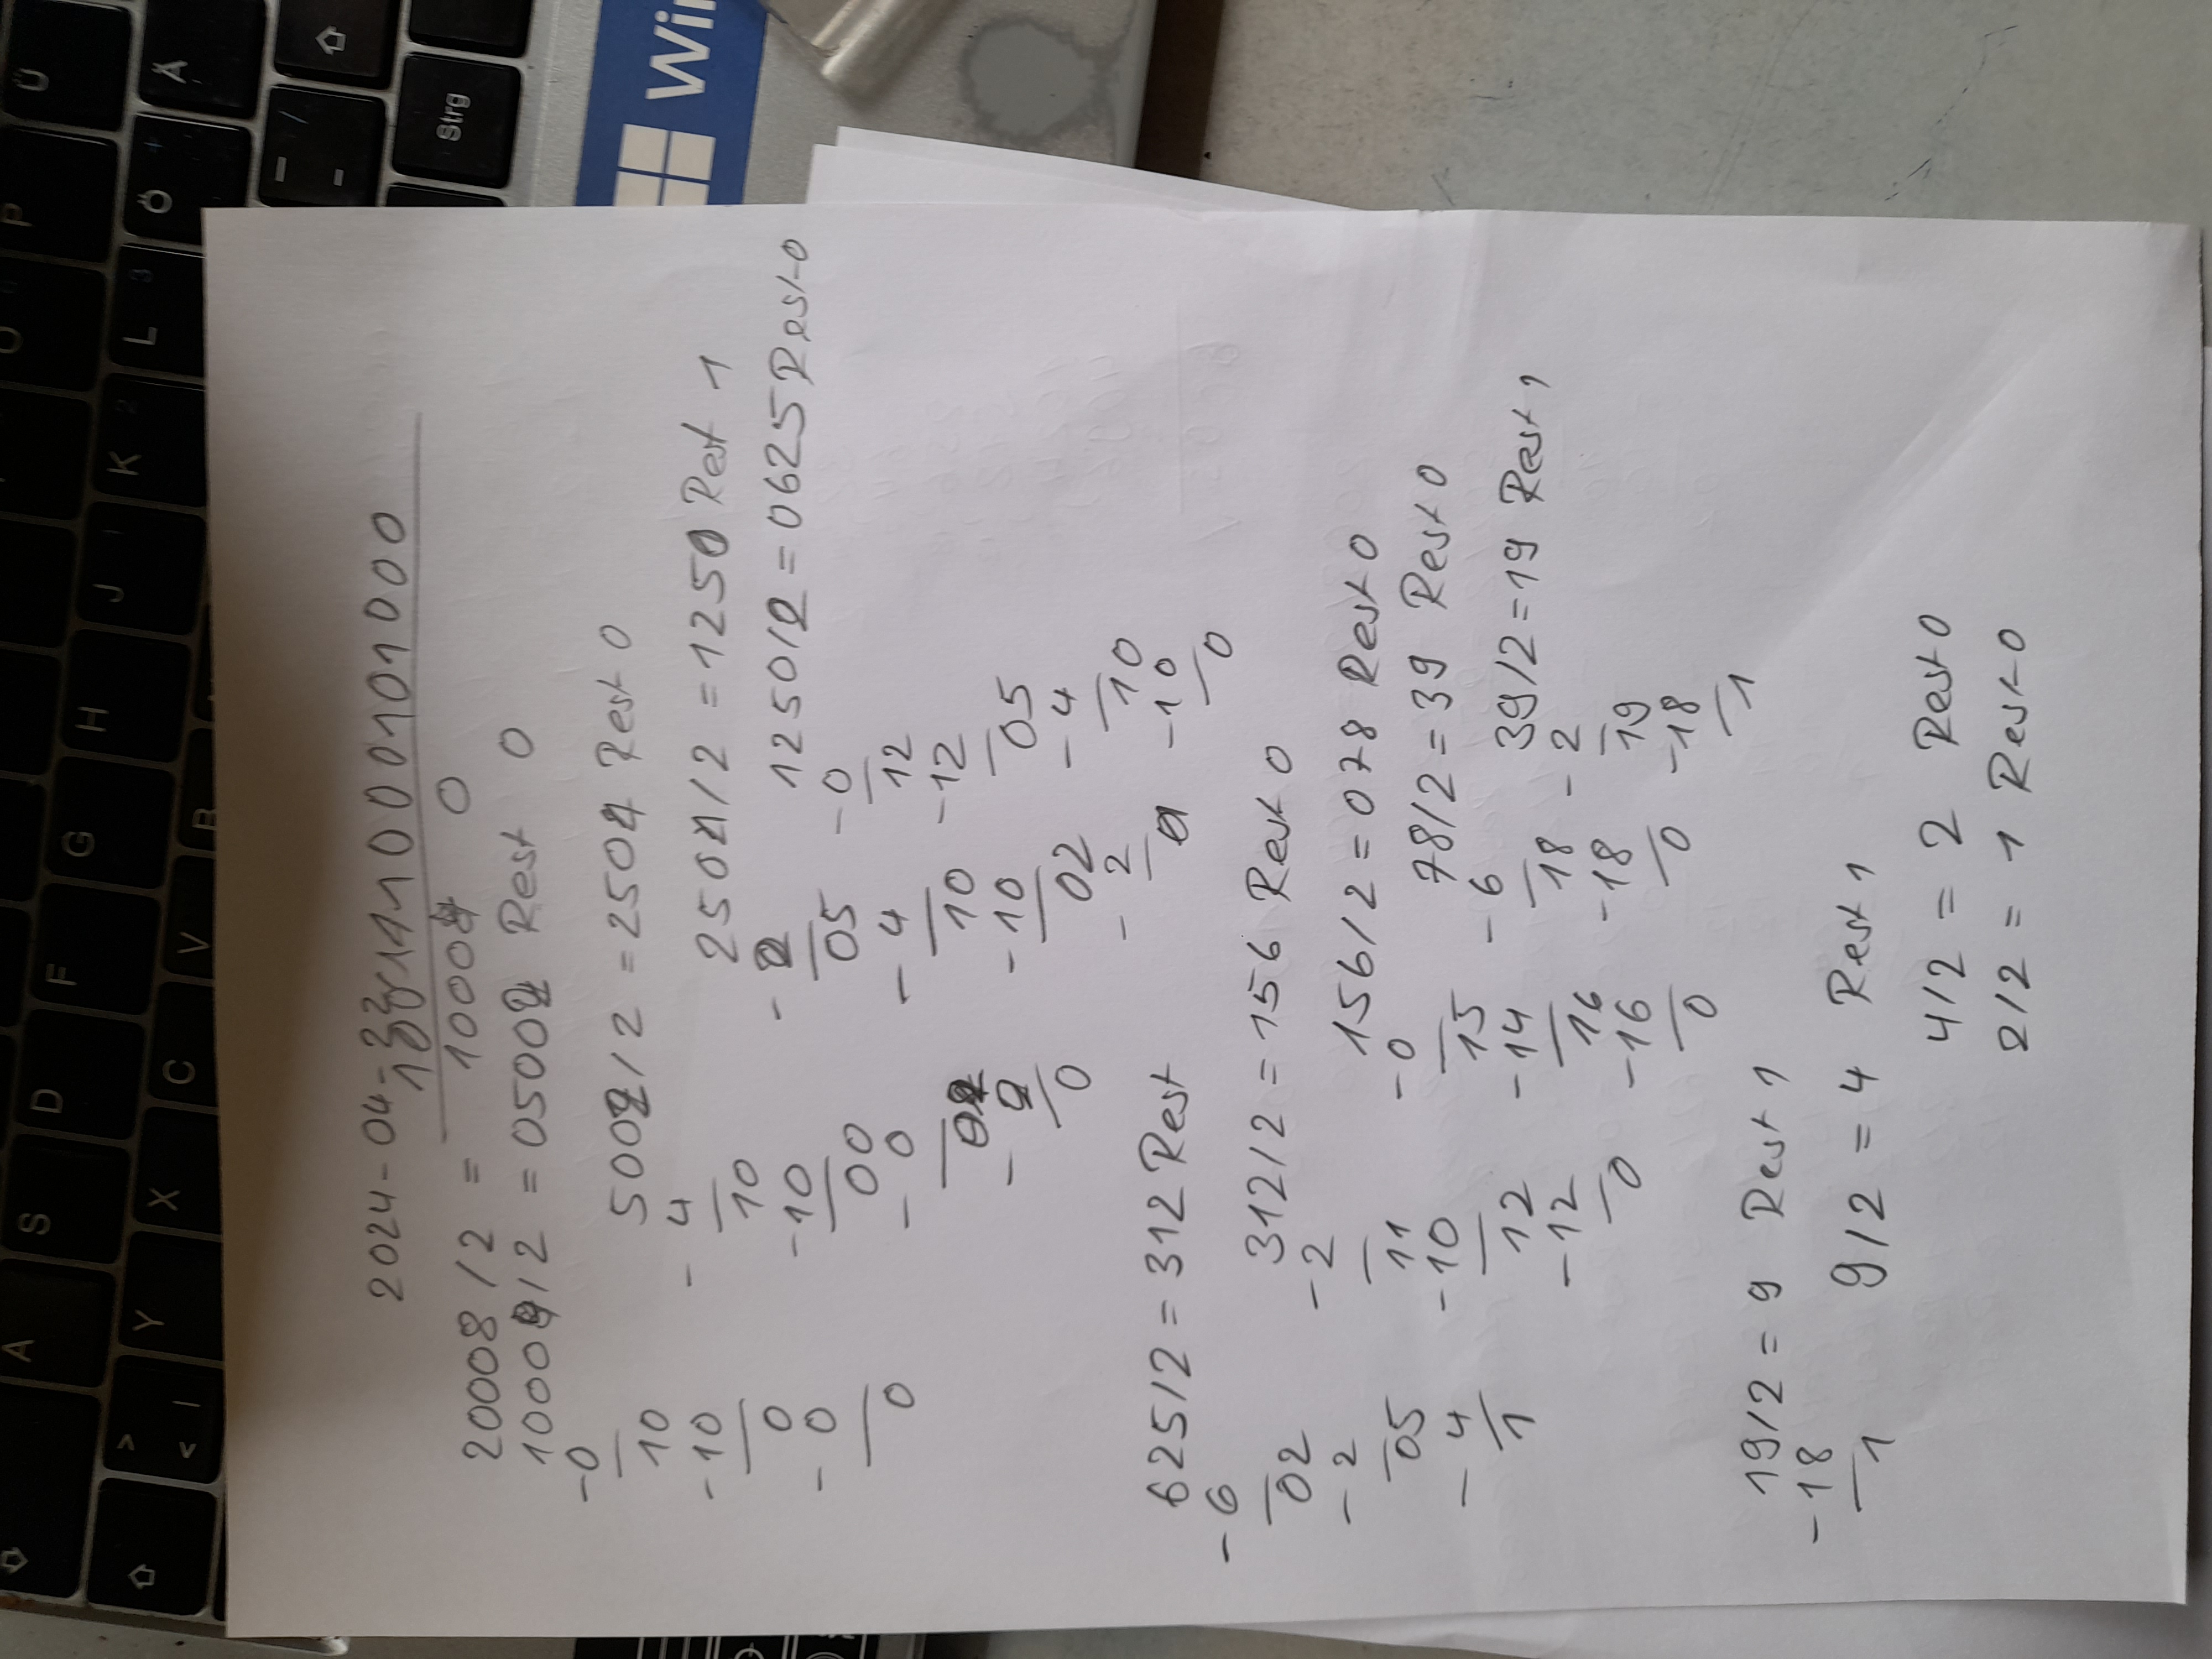 2024-04-23
100111000101000
20008/2 = 10004 0
10004/2 = 05002 Rest 0
-0
10
-10
0
-0
0
5002/2 = 2501 Rest 0
-4
10
-10
00
-0
02
-2
0
2501/2 = 1250 Rest 1
-2
05
-4
10
-10
02
-2
0
1250/2 = 0625 Rest 0
-0
12
-12
05
-4
10
-10
0
625/2 = 312 Rest
-6
02
-2
05
-4
1
312/2 = 156 Rest 0
-2
11
-10
12
-12
0
156/2 = 078 Rest 0
-0
15
-14
16
-16
0
78/2 = 39 Rest 0
-6
18
-18
0
39/2 = 19 Rest 1
-2
19
-18
1
19/2 = 9 Rest 1
-18
1
9/2 = 4 Rest 1
4/2 = 2 Rest 0
2/2 = 1 Rest 0
Ü
P
Ä
Ö
L 3
K 2
J 1
H
G
F
D
S
A
B
V
C
X
Y
Strg
Wi